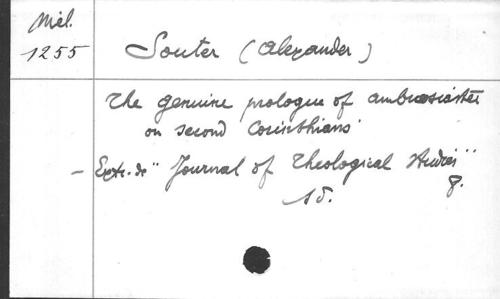 Mél.
1255
Souter (Alexander)
The genuine prologue of ambrosiaster
on second Corinthians
- Extr. de "Journal of Theological Studies"
8.